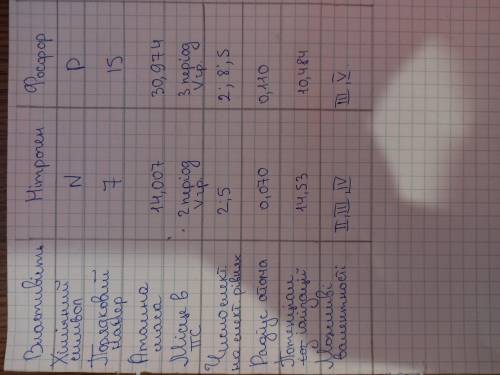 Властивість Нітроген Фосфор
Хімічний
символ N P
Порядковий
номер 7 15
Атомна
маса 14,007 30,974
Місце в
ПС
2 період
V гр.
3 період
V гр.
Число елект.
на енет. рівнях 2; 5 2; 8; 5
Радіус атома 0,070 0,110
Потенціал
іонізації 14,53 10,484
Можливі
валентності II, III, IV III, V